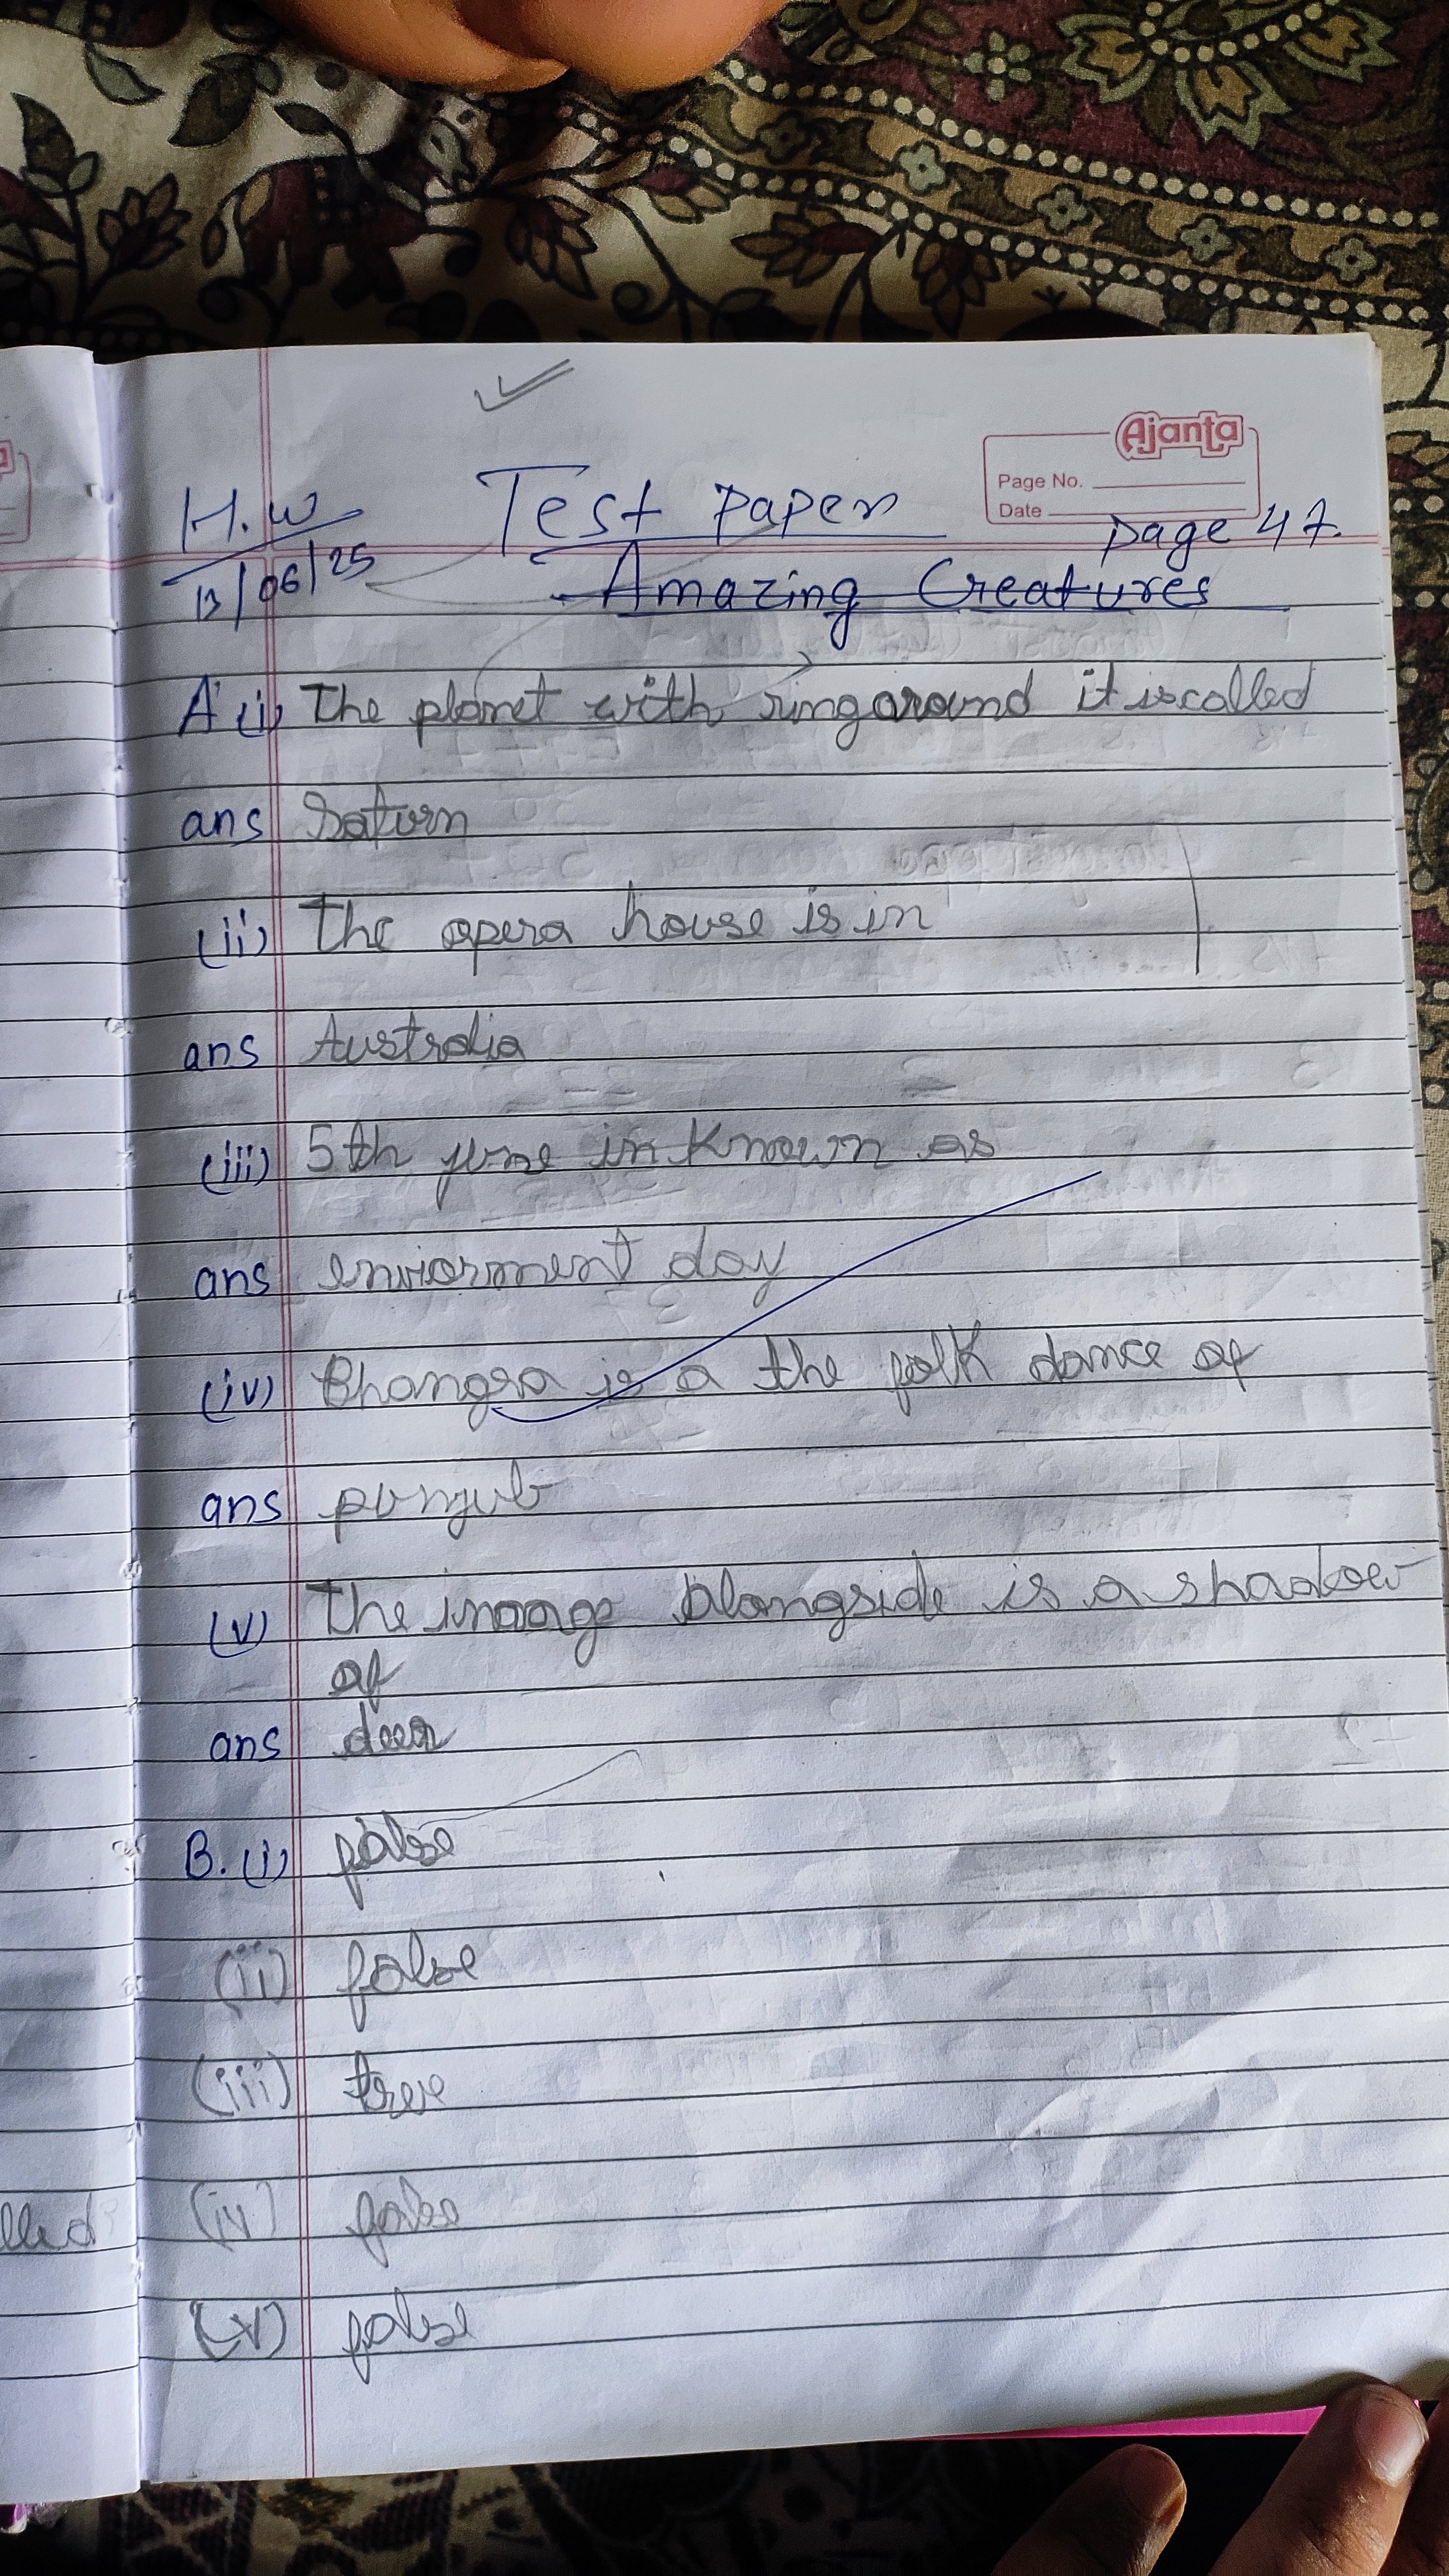 Ajanta
Page No.
Date
H.W Test paper
13/06/25 page 47.
Amazing Creatures
A (i) The planet with ring around it is called
ans Saturn
(ii) The opera house is in
ans Australia
(iii) 5th june in known as
ans enviorment day
(iv) Bhangra is a the folk dance of
ans punjub
(v) The image alongside is a shadow
of
ans deer
B. (i) false
(ii) false
(iii) true
(iv) false
(v) false
lled